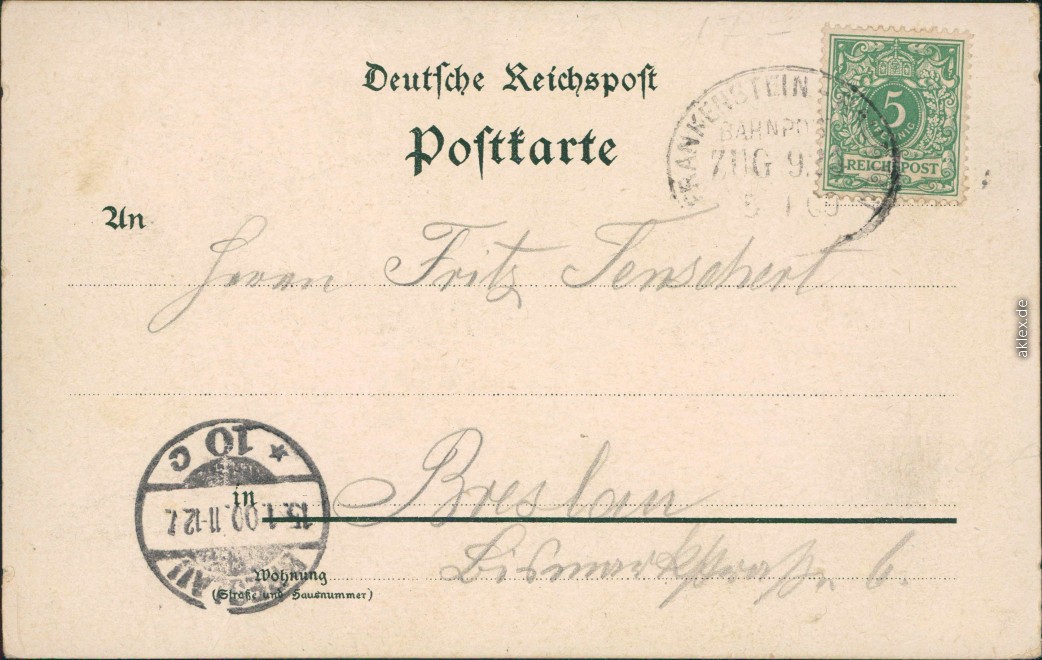 Deutsche Reichspost
Postkarte
FRANKENSTEIN
BAHNPO
ZUG 9
5
PFENNIG
REICHSPOST
An
Herrn Fritz Tenschert
in Breslau
Wohnung
(Straße und Hausnummer)
Bismarkstraße 6.
BRESLAU
15.1.00.11-12.V.
* 10 c
aklex.de